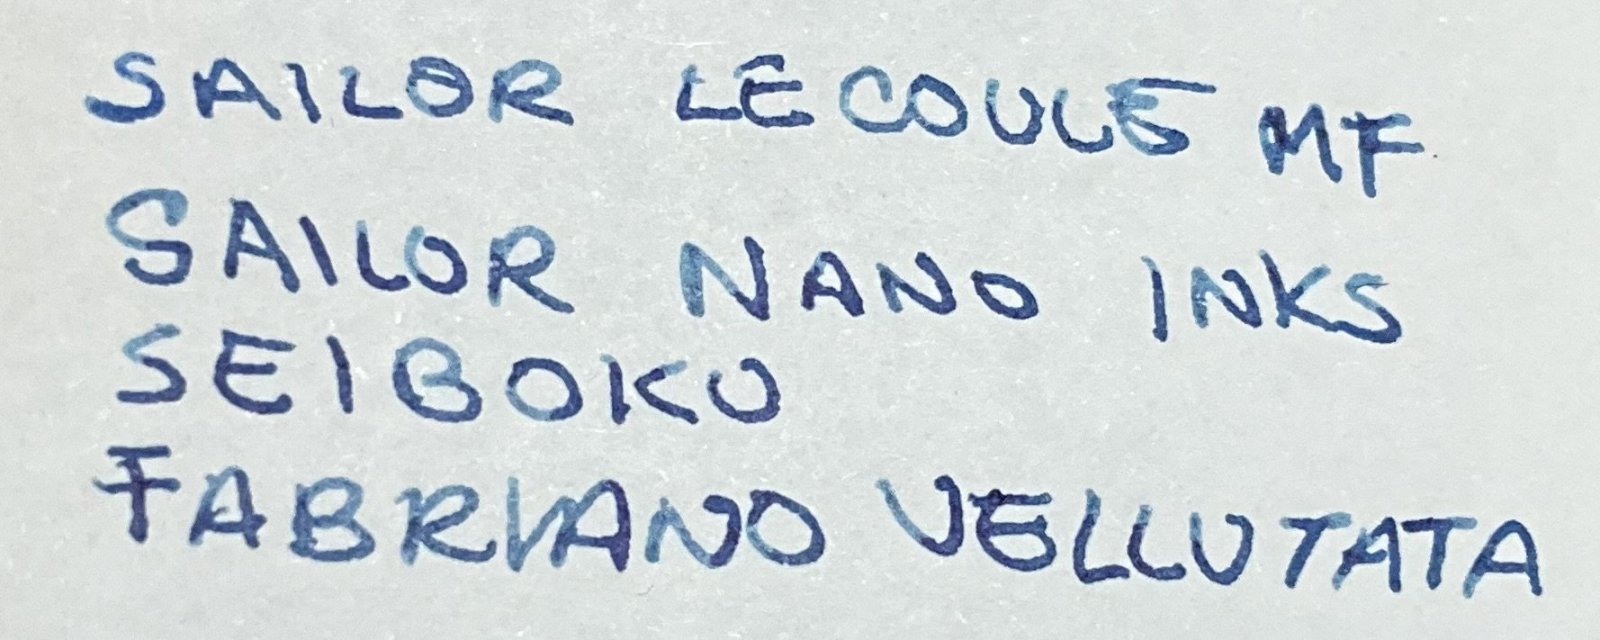 SAILOR LECOULE MF
SAILOR NANO INKS
SEIBOKU
FABRIANO VELLUTATA